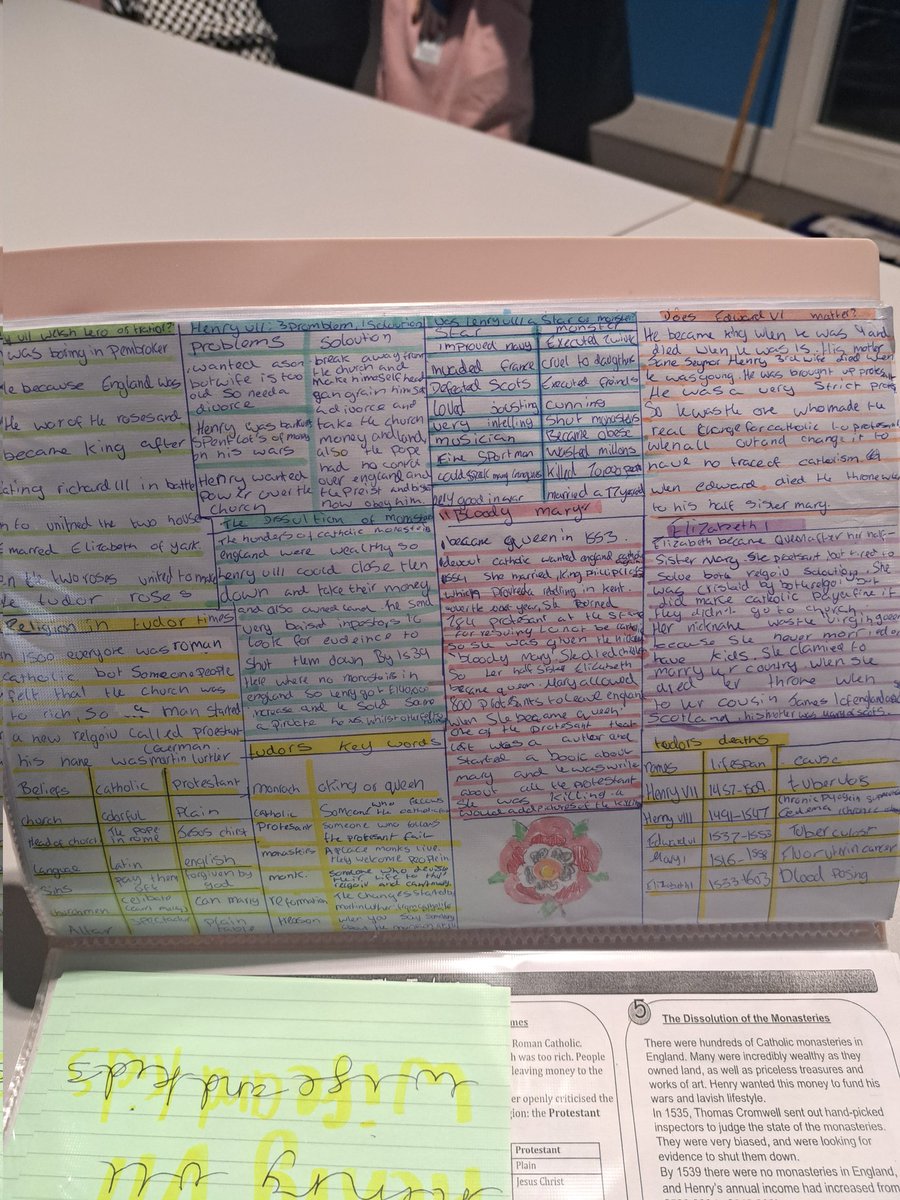 VII Welsh hero or traitor?
was boring in Pembroker
He because England was
the war of the roses and
became king after
ating richard III in battle
unified the two house
marred Elizabeth of york
the two roses united to make
Tudor roses
Religion in tudor times
in 1500 everyone was roman
Catholic, but Some people
felt that the church was
to rich, So a man started
a new relgoiu called protestant
German.
his name was martin lurther
Beliefs catholic protestant
church colorful Plain
Head of church The pope in rome Jesus chirst
Langue latin english
Sins pay them off forgiven by god
churchmen celibate can marry
Altar spectacular Plain table
Henry VIII: 3 promblem, 1 soloution
problems
wanted a son
but wife is too
old So need a
divorce
Henry was
Spent lot's of money
on his wars
Henry wanted
Power over the
church
soloution
break away from
the church and
make himself head
gan grain himself
a divorce and
take the church
money and land
also the pope
had no control
over england and
the Preist and
now obey him
The dissultion of
The hunders of catholic
england were wealthy so
henry VIII could close then
down and take their money
and also owned land. he send
very baised inpostors to
look for eudeince to
shut them down By 1539
there where no monasteirs in
england so
increase and he sold some
Tudors Key words
monach a king or queen
catholic Someone who follows
Protestant Someone who follows the protestant
monasteirs A place monks live. they welcome people in
monk. someone who
reformation The changes started by
treason when you say
Was henry VIII a Star or monster
Star monster
improved navy Executed 2 wive
invaded france cruel to daughters
Defeated Scots Executed freinds
Loved jousting Cunning
very intelling Shut monasters
musician Became obese
Fine Sportman Wasted millons
could speak many langues killed 70,000
very good in war married a 17 year
"Bloody mary"
became queen in 1553
devout catholic wanted england catholic
1554 She married King phillip
which provoked in kent.
over the next year, She burned
284 protestant at the stake
for refusing to not be catholic
So she was given the nickname
"bloody mary" She died childless
So her half sister Elizabeth
became queen. Mary allowed
800 protestints to leave england
when She became queen
one of the protestant that
left was a auther and
started a book about
mary and he was write
about all the protestant
she was killing
Does Edward VI matter?
He became king when he was 9 and
died when he was 15. His mother
Jane Seymor Henry 3rd wife died when
he was young. He was brought up protestant
He was a very Strict
So he was the one who made the
real change for catholic to protestant
when all out and change it to
have no trace of catholism
when edward died the throne was
to his half sister mary.
Elizabeth I
Elizabeth became Queen after her half-
Sister Mary. She protestant but tired to
Solve both relgoiu soloution. She
was by both relgoiu, but
did make catholic pay a fine if
they didn't go to church
Her nickname was the virgin queen
because she never morried or
have kids. She clamied to
marry her country when she
died her throne when
to her cousin James I of england and
Scotland his mother was
todors deaths
names lifespan cause
Henry VII 1457-1509 tubertulois
Henry VIII 1491-1547
Edward VI 1537-1553 Tuberculost
Mary I 1516-1558
Elizabeth I 1533-1603 Blood Posing
wife and kids
Henry VII
Roman Catholic.
h was too rich. People
leaving money to the
er openly criticised the
gion: the Protestant
Protestant
Plain
Jesus Christ
5 The Dissolution of the Monasteries
There were hundreds of Catholic monasteries in
England. Many were incredibly wealthy as they
owned land, as well as priceless treasures and
works of art. Henry wanted this money to fund his
wars and lavish lifestyle.
In 1535, Thomas Cromwell sent out hand-picked
inspectors to judge the state of the monasteries.
They were very biased, and were looking for
evidence to shut them down.
By 1539 there were no monasteries in England,
and Henry's annual income had increased from